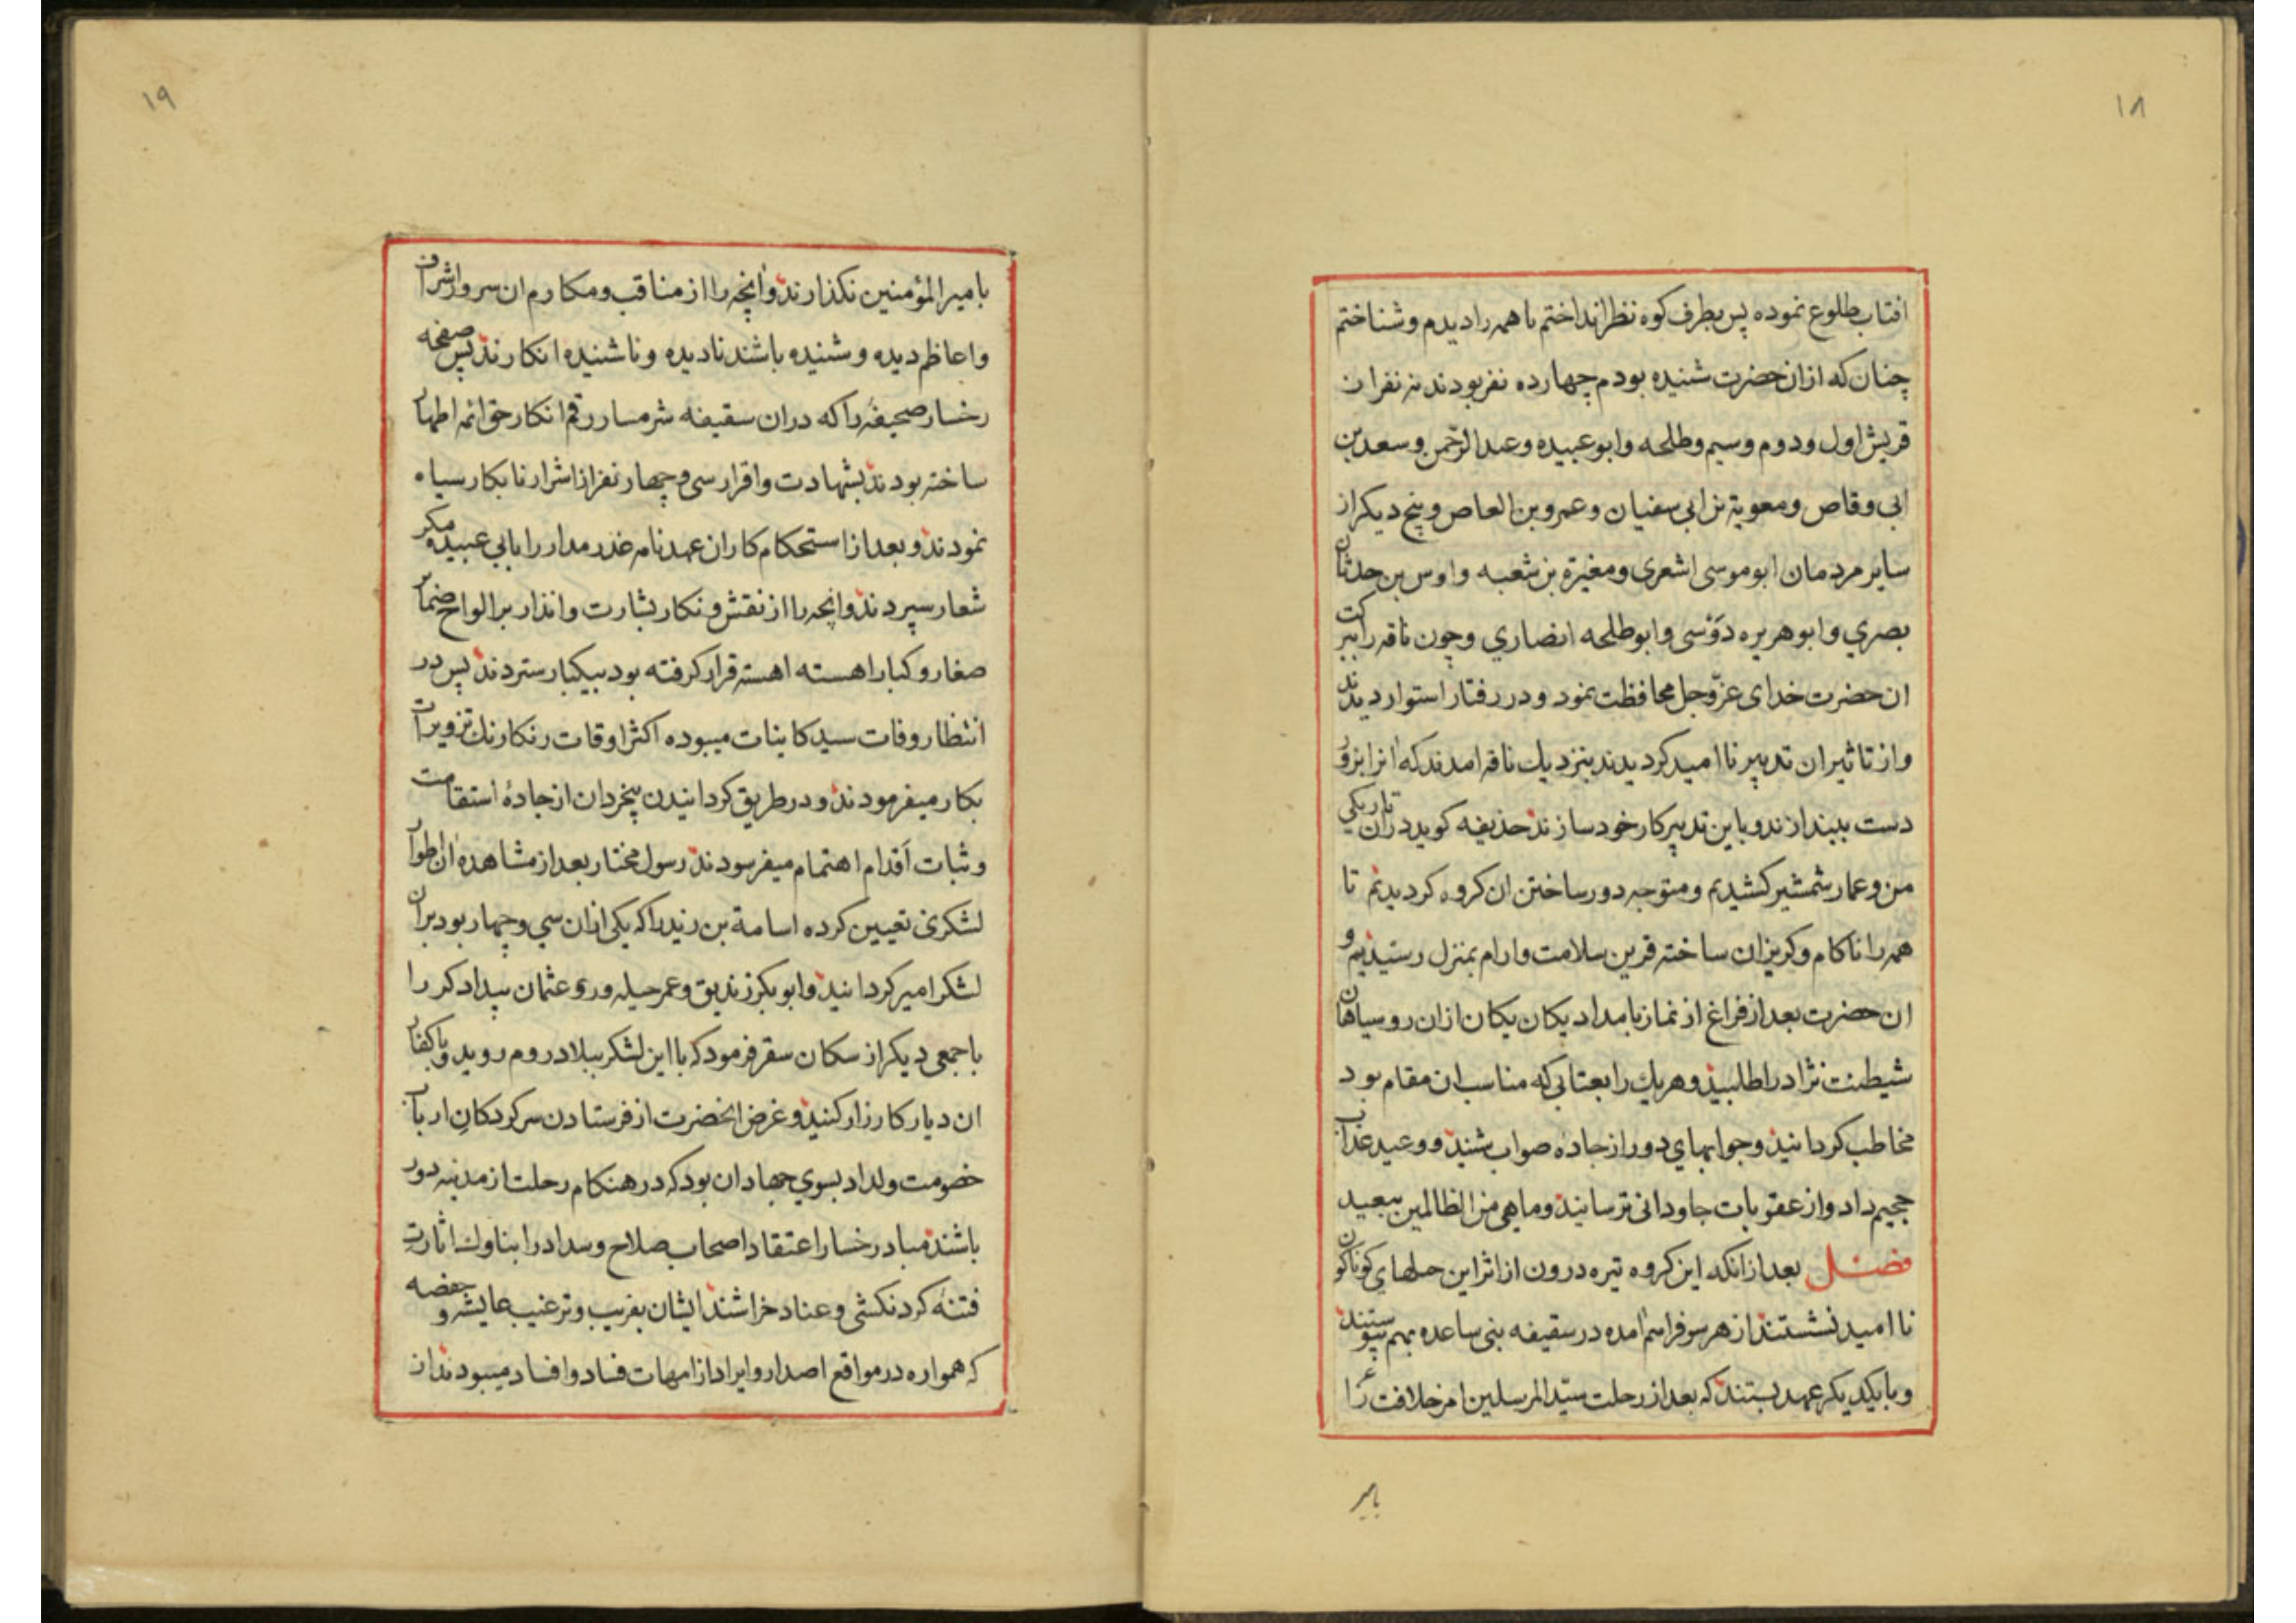 ۱۸
افتاب طلوع نموده پس بطرف کوه نظر انداختم تا همه را دیدم و شناختم
چنان که ازان حضرت شنیده بودم چهارده نفر بودند نه نفر از
قریش اول و دوم و سیم و طلحه و ابو عبیده و عبد الرّحمن و سعد بن
ابی وقاص و معویة بن ابی سفنیان و عمرو بن العاص و پنج دیکر از
سایر مردمان ابو موسی اشعری و مغیرة بن شعبه و اوس بن حدثان
بصري و ابو هریره دَوْسی و ابو طلحه انصاري و چون ناقه را ببرکت
ان حضرت خدای عزّ و جل محافظت نمود و در رفتار استوار دیدند
و از تاثیر ان تدبیر نا امید کردیدند بنزدیك ناقه امدند که انرا بزور
دست بیندازند و باین تدبیر کار خود سازند حذیفه کوید دران تاریکي
من و عمار شمشیر کشیدیم و متوجه دور ساختن ان کروه کردیدیم تا
همه را ناکام و کریزان ساخته قرین سلامت و ارام بمنزل رسیدیم و
ان حضرت بعد از فراغ از نماز بامداد یکان یکان ازان روسیاهان
شیطنت نژاد را طلبید و هریك را بعتابی که مناسب ان مقام بود
مخاطب کردانید و جوابهای دور از جاده صواب شنید و وعید عذاب
جحیم داد و از عقوبات جاودانی ترسانید و ما هی من الظالمین ببعید
فصل بعد از انکه این کروه تیره درون از اثر این حیلهاي کوناکون
نا امید نشستند از هر سو فراهم امده در سقیفه بنی ساعده بهم پیوستند
و با یکدیکر عهد بستند که بعد از رحلت سیّد المرسلین امر خلافت را
بامیر
۱۹
بامیر المؤمنین نکذارند و انچه را از مناقب و مکارم ان سرور اشراف
و اعاظم دیده و شنیده باشند نادیده و ناشنیده انکارند پس صفحه
رخسار صحیفه را که دران سقیفه شرمسار رقم انکار حق ائمه اطهار
ساخته بودند بشهادت و اقرار سی و چهار نفر از اشرار نابکار سیاه
نمودند و بعد از استحکام کار ان عهدنامه غدر مدار را بابي عبیده مکر
شعار سپردند و انچه را از نقش و نکار بشارت و انذار بر الواح ضمایر
صغار و کبار اهسته اهسته قرار کرفته بود بیکبار ستردند پس در
انتظار وفات سید کاینات میبوده اکثر اوقات رنکارنك تزویرات
بکار میفرمودند و در طریق کردانیدن بیخردان از جادهٔ استقامت
و ثبات اَقدام اهتمام میفرسودند رسول مختار بعد از مشاهده ان اطوار
لشکری تعیین کرده اسامة بن زید را که یکی ازان سي و چهار بود بران
لشکر امیر کردانید و ابو بکر زندیق و عمر حیله ور و عثمان بیدادکر را
با جمعی دیکر از سکان سقر فرمود که با این لشکر ببلاد روم روید و با کفار
ان دیار کارزار کنید و غرض انحضرت از فرستادن سرکردکان ارباب
خصومت و لداد بسوي جهاد ان بود که در هنکام رحلت از مدینه دور
باشند مبادر رخسار اعتقاد اصحاب صلاح و سداد را بناوك اثارت
فتنه کرد نکشی و عناد خراشند ایشان بفریب و ترغیب عایشه و حفصه
که همواره در مواقع اصدار و ایراد از امهات فساد و افساد میبودند از